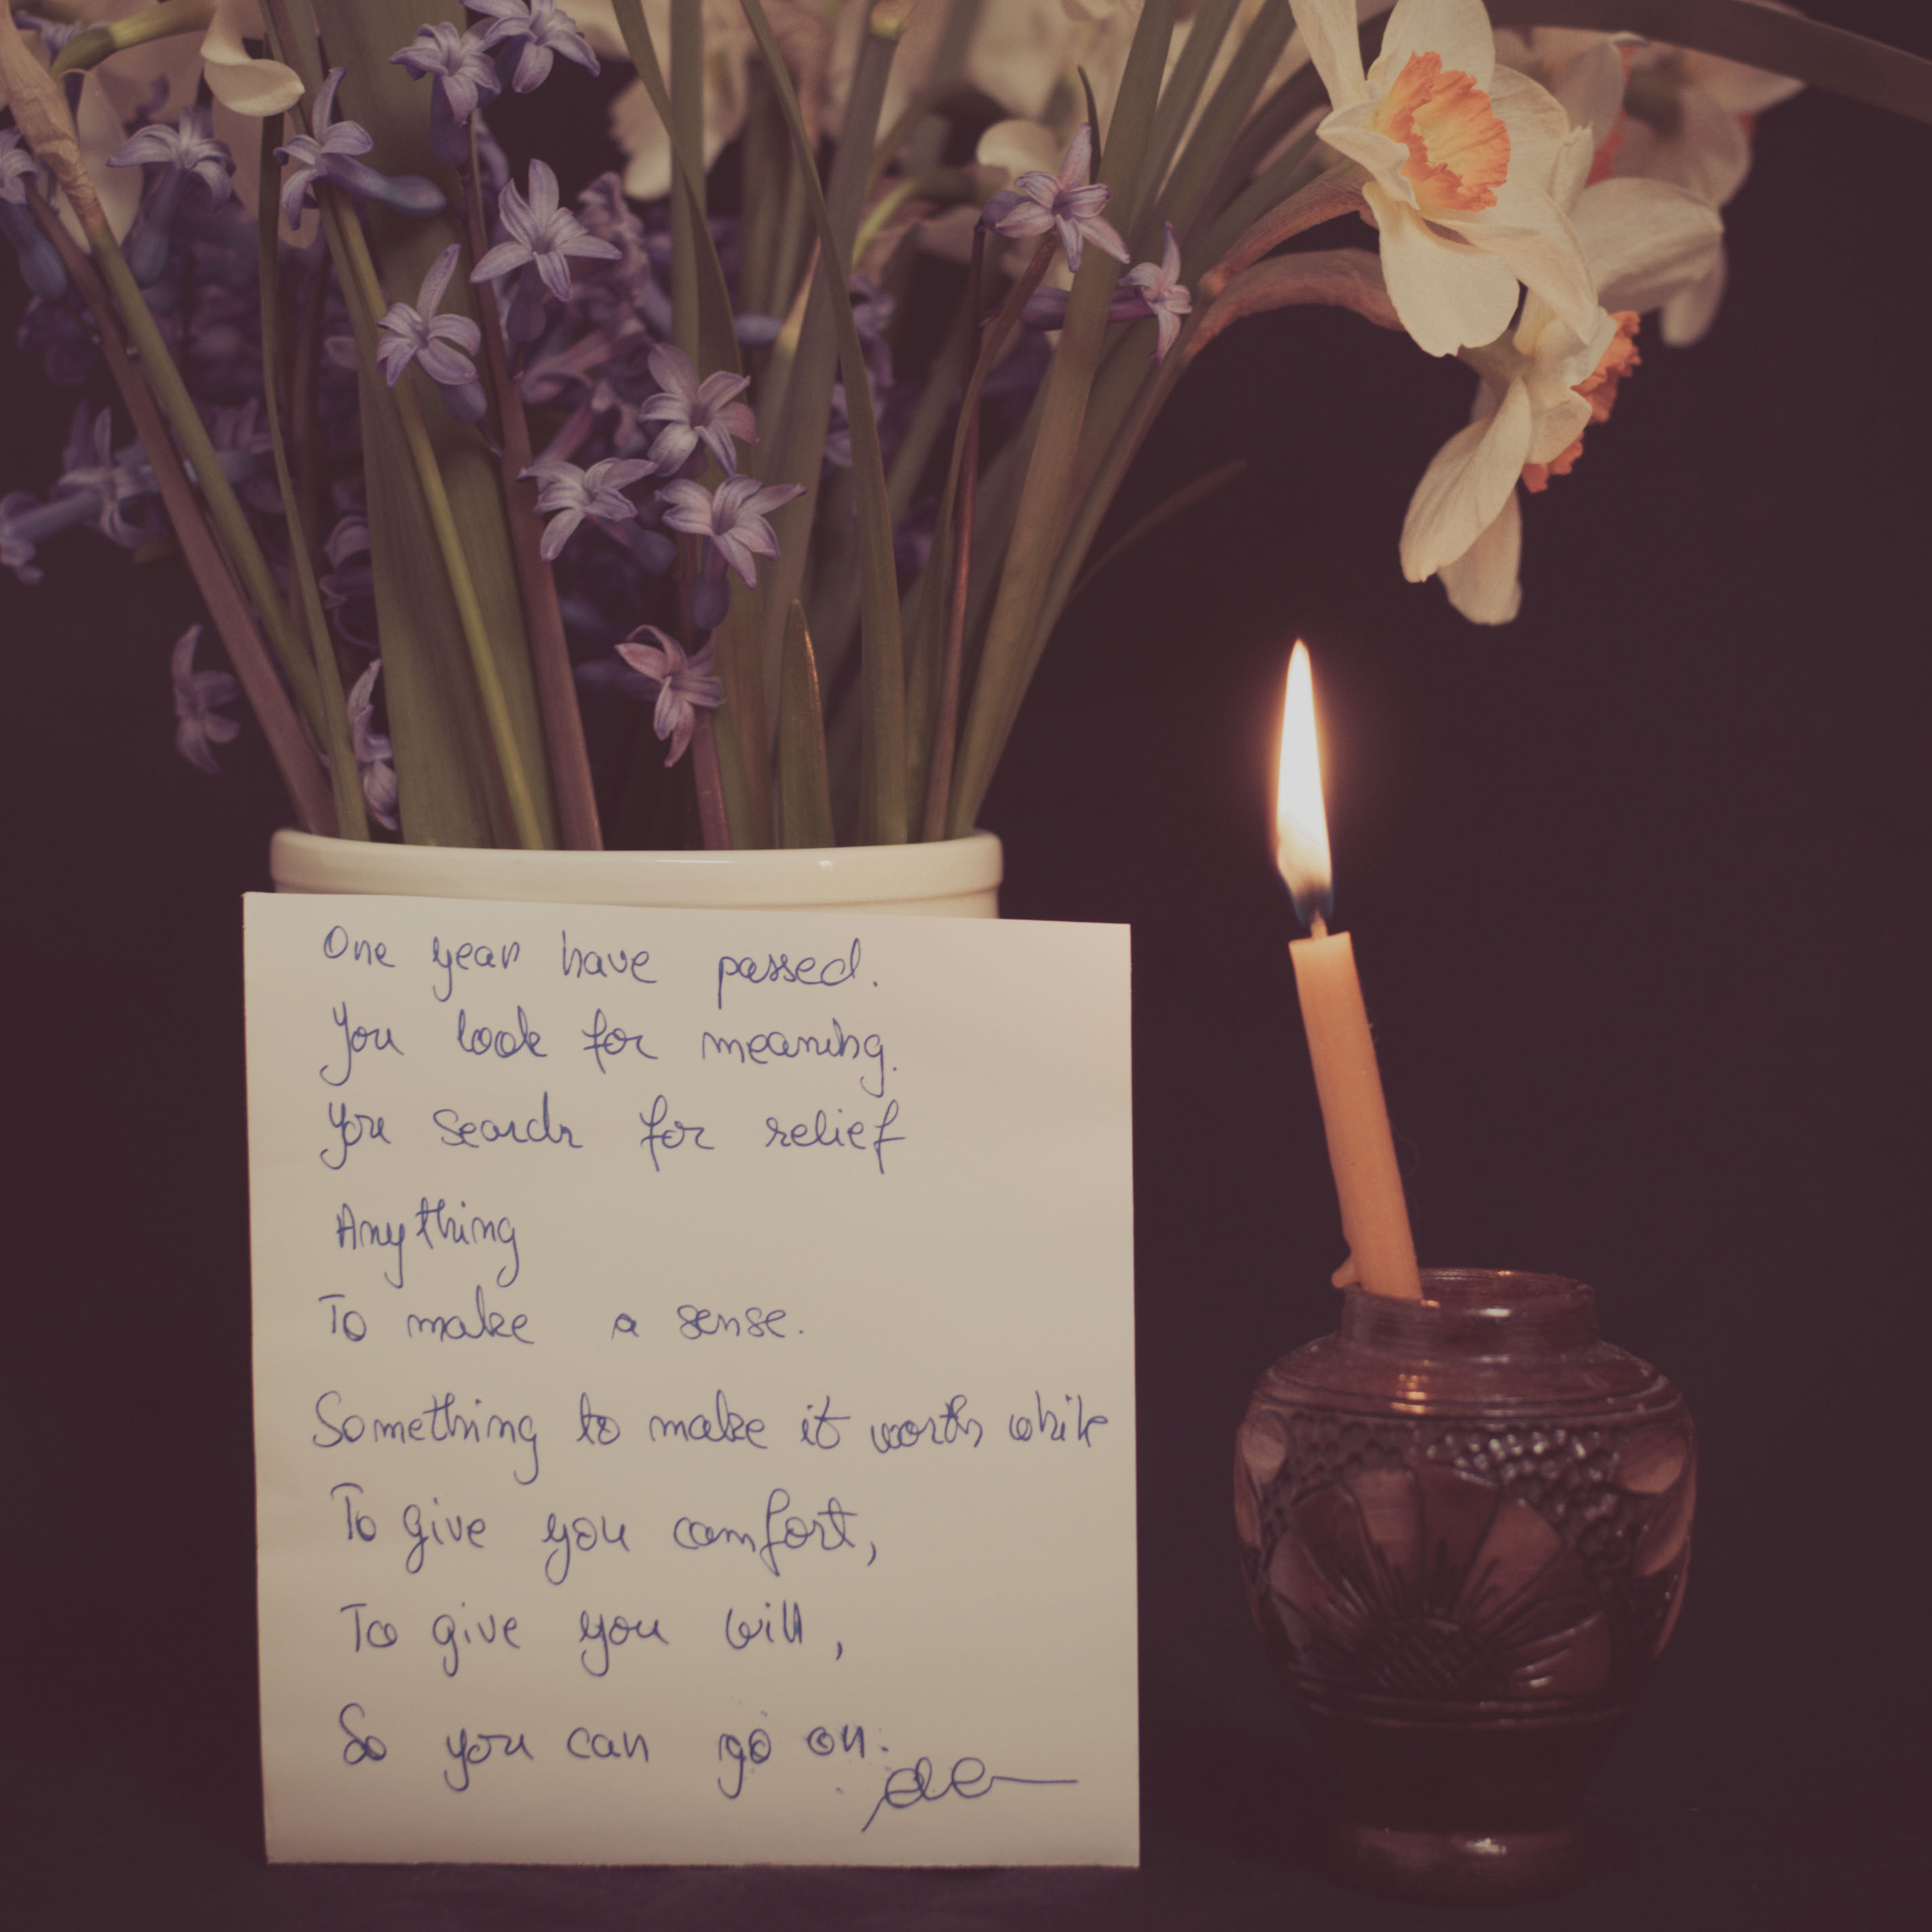 One year have passed.
You look for meaning.
You search for relief
Anything
To make a sense.
Something to make it worth while
To give you comfort,
To give you will,
So you can go on.